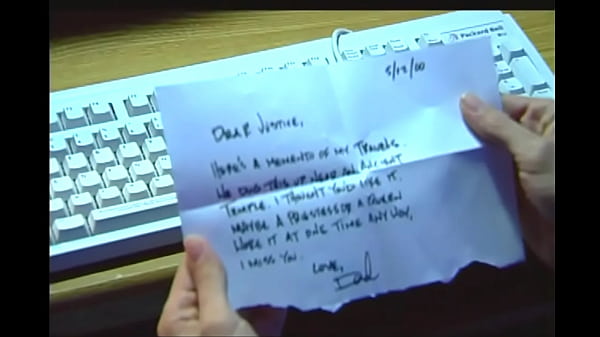 Packard Bell
5/13/00
DEAR JUSTICE,
HERE'S A MEMENTO OF MY TRAVELS.
WE DUG THIS UP NEAR AN ANCIENT
TEMPLE. I THOUGHT YOU'D LIKE IT.
MAYBE A PRIESTESS OR A QUEEN
WORE IT AT ONE TIME ANYWAY,
I MISS YOU.
LOVE,
Dad